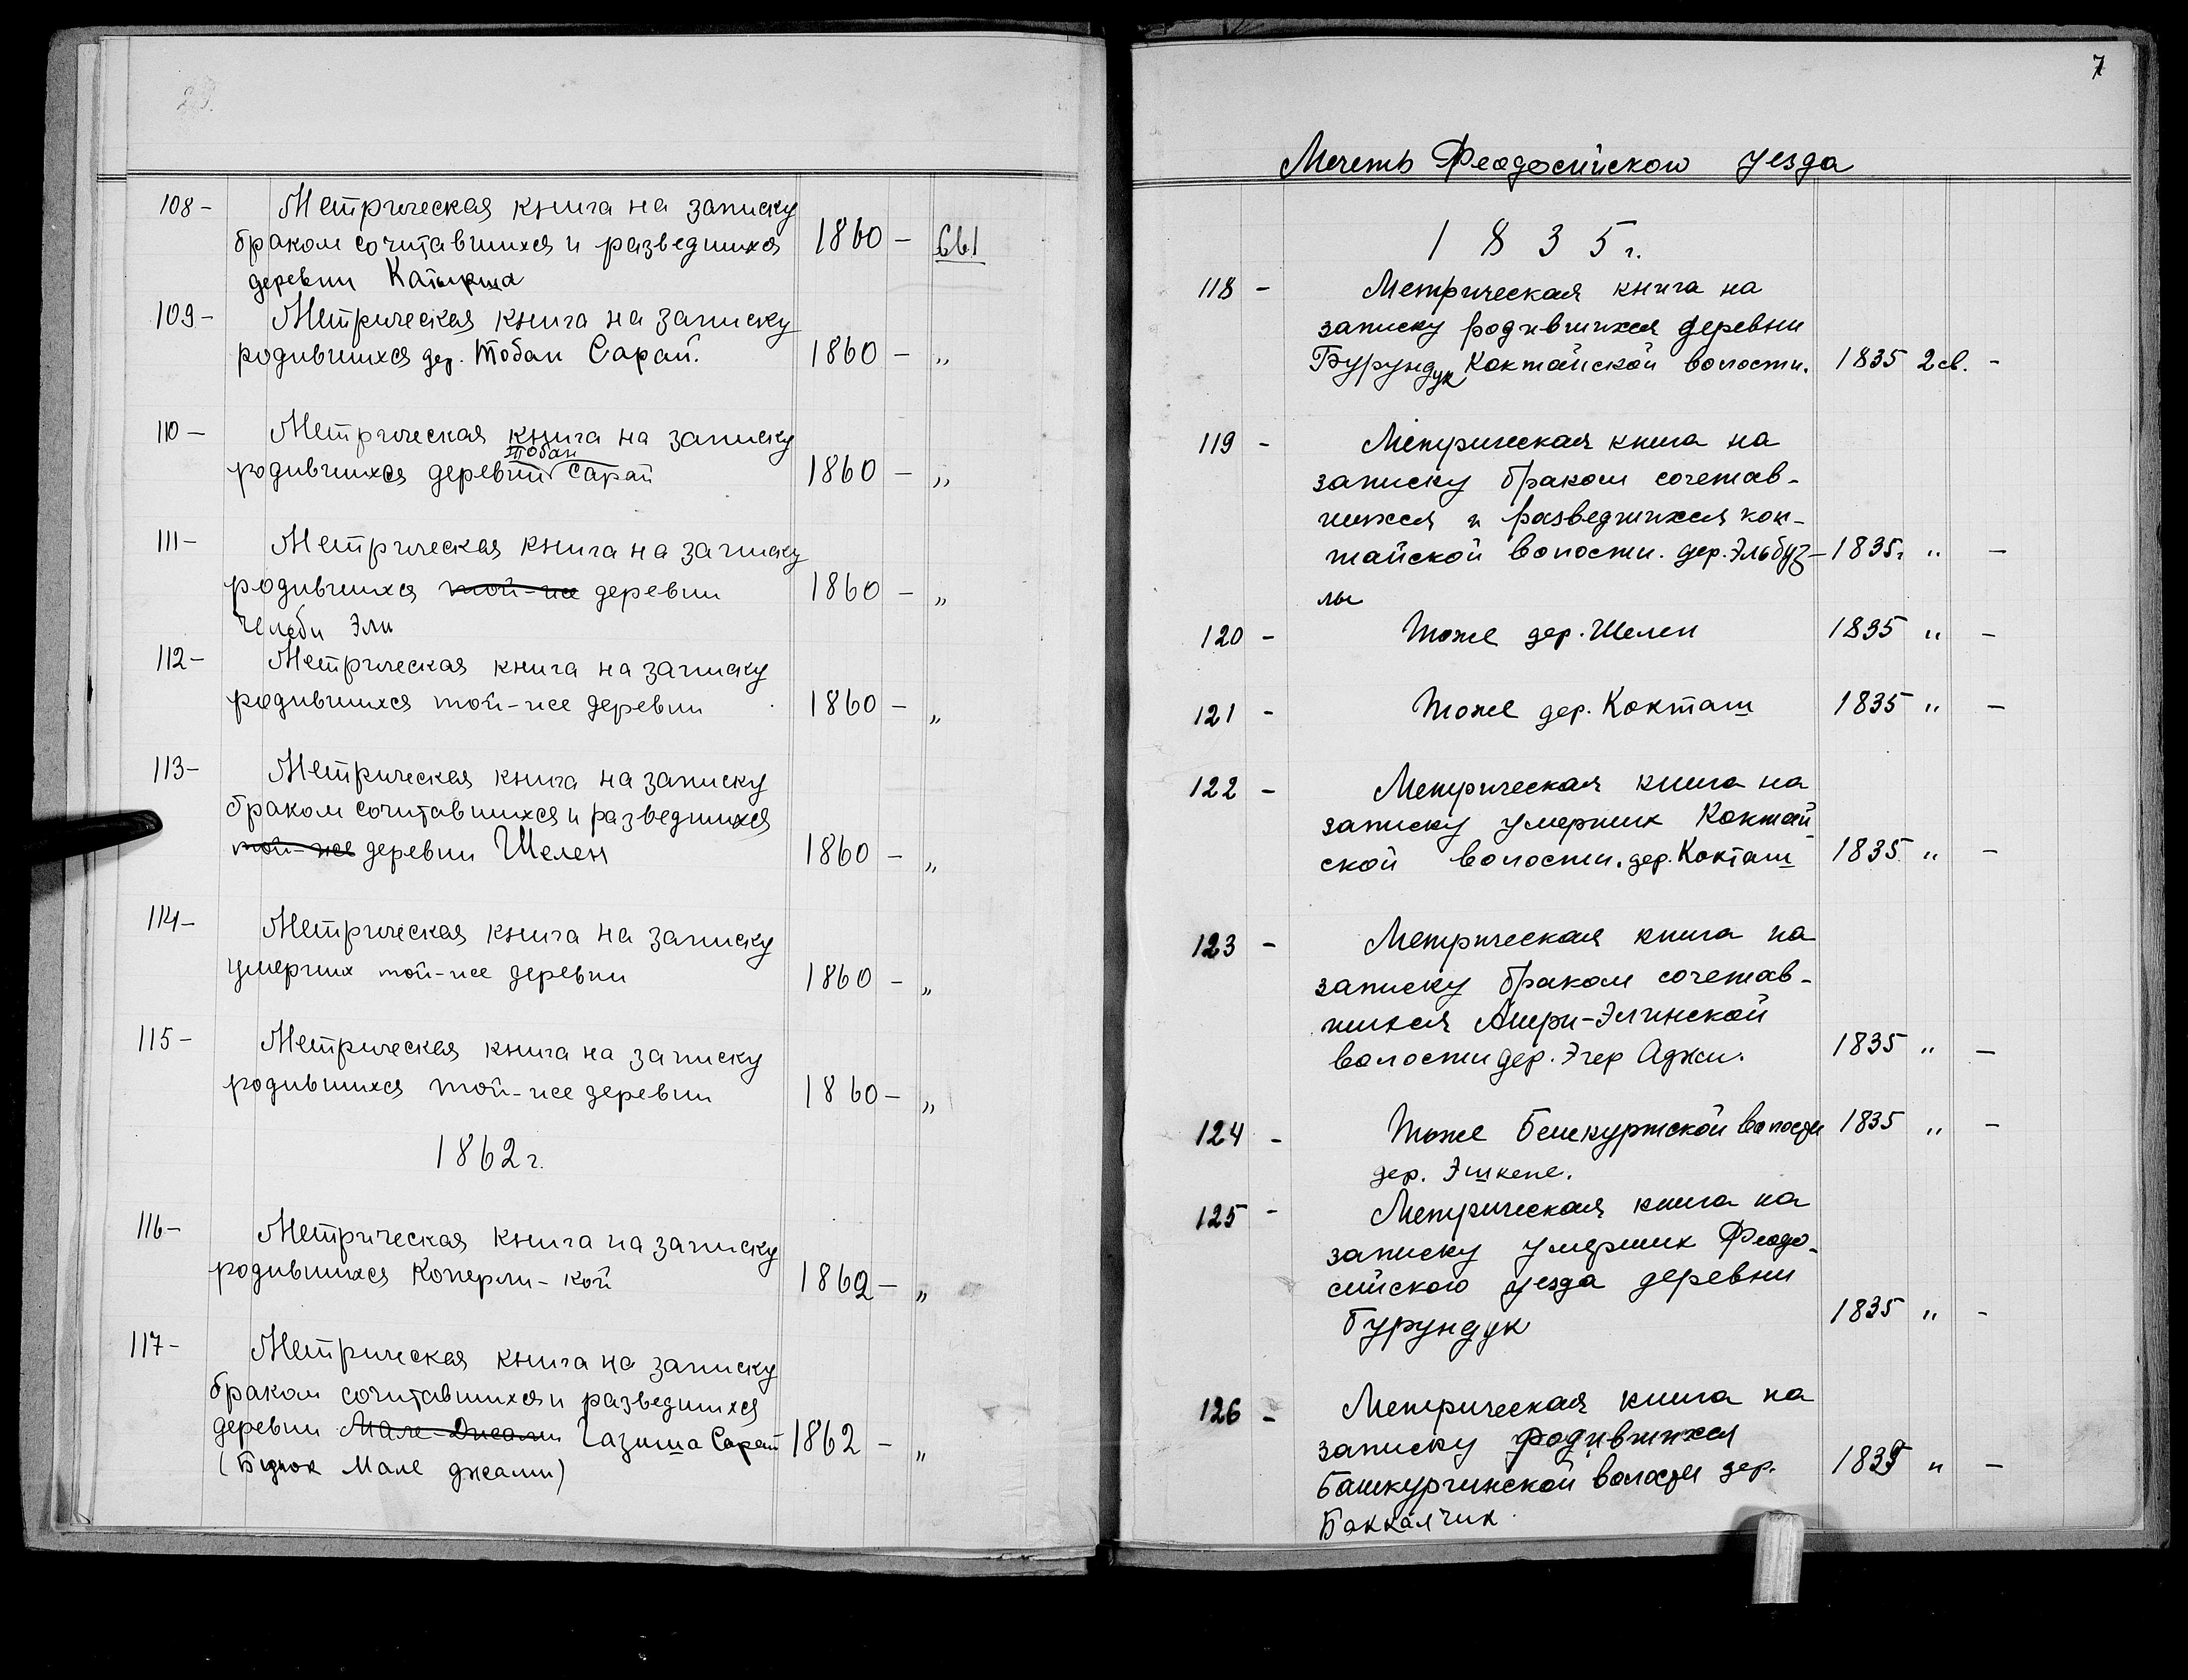 108 - Метрическая книга на записку
браком сочитавшихся и разведшихся 1860 -
деревни Катырша
109 - Метрическая книга на записку
родившихся дер. Тобан Сарай. 1860 - „
110 - Метрическая книга на записку
Тобан
родившихся деревни Сарай 1860 - „
111 - Метрическая книга на записку
родившихся той-же деревни 1860 - „
Челеби Эли
112 - Метрическая книга на записку
родившихся той-же деревни 1860 - „
113 - Метрическая книга на записку
браком сочитавшихся и разведшихся
той-же деревни Шелен 1860 - „
114 - Метрическая книга на записку
умерших той-же деревни 1860 - „
115 - Метрическая книга на записку
родившихся той-же деревни 1860 - „
1862 г.
116 - Метрическая книга на записку
родившихся Коперли-кой 1862 - „
117 - Метрическая книга на записку
браком сочитавшихся и разведшихся
деревни Мале-Джами Чазиша Сарай 1862 - „
(Биюк Мале джами)
7
Мечеть Феодосийского уезда
1835 г.
118 - Метрическая книга на
записку родившихся деревни
Бурундук Коктайской волости. 1835 2св. -
119 - Метрическая книга на
записку браком сочетав-
шихся и разведшихся кок-
тайской волости. дер. Эльбуз- 1835г „ -
лы
120 - Тоже дер. Шелен 1835 „ -
121 - Тоже дер. Кокташ 1835 „ -
122 - Метрическая книга на
записку умерших Коктай-
ской волости. дер. Кокташ 1835 „ -
123 - Метрическая книга на
записку браком сочетав-
шихся Ашри-Элинской
волости дер. Эчер Аджи. 1835 „ -
124 - Тоже Бешкуртской волости 1835 „ -
дер. Эшкене.
125 - Метрическая книга на
записку умерших Феодо-
сийского уезда деревни
Бурундук 1835 „ -
126 - Метрическая книга на
записку родившихся
Башкурчинской волости дер. 1835 „ -
Баккалчик